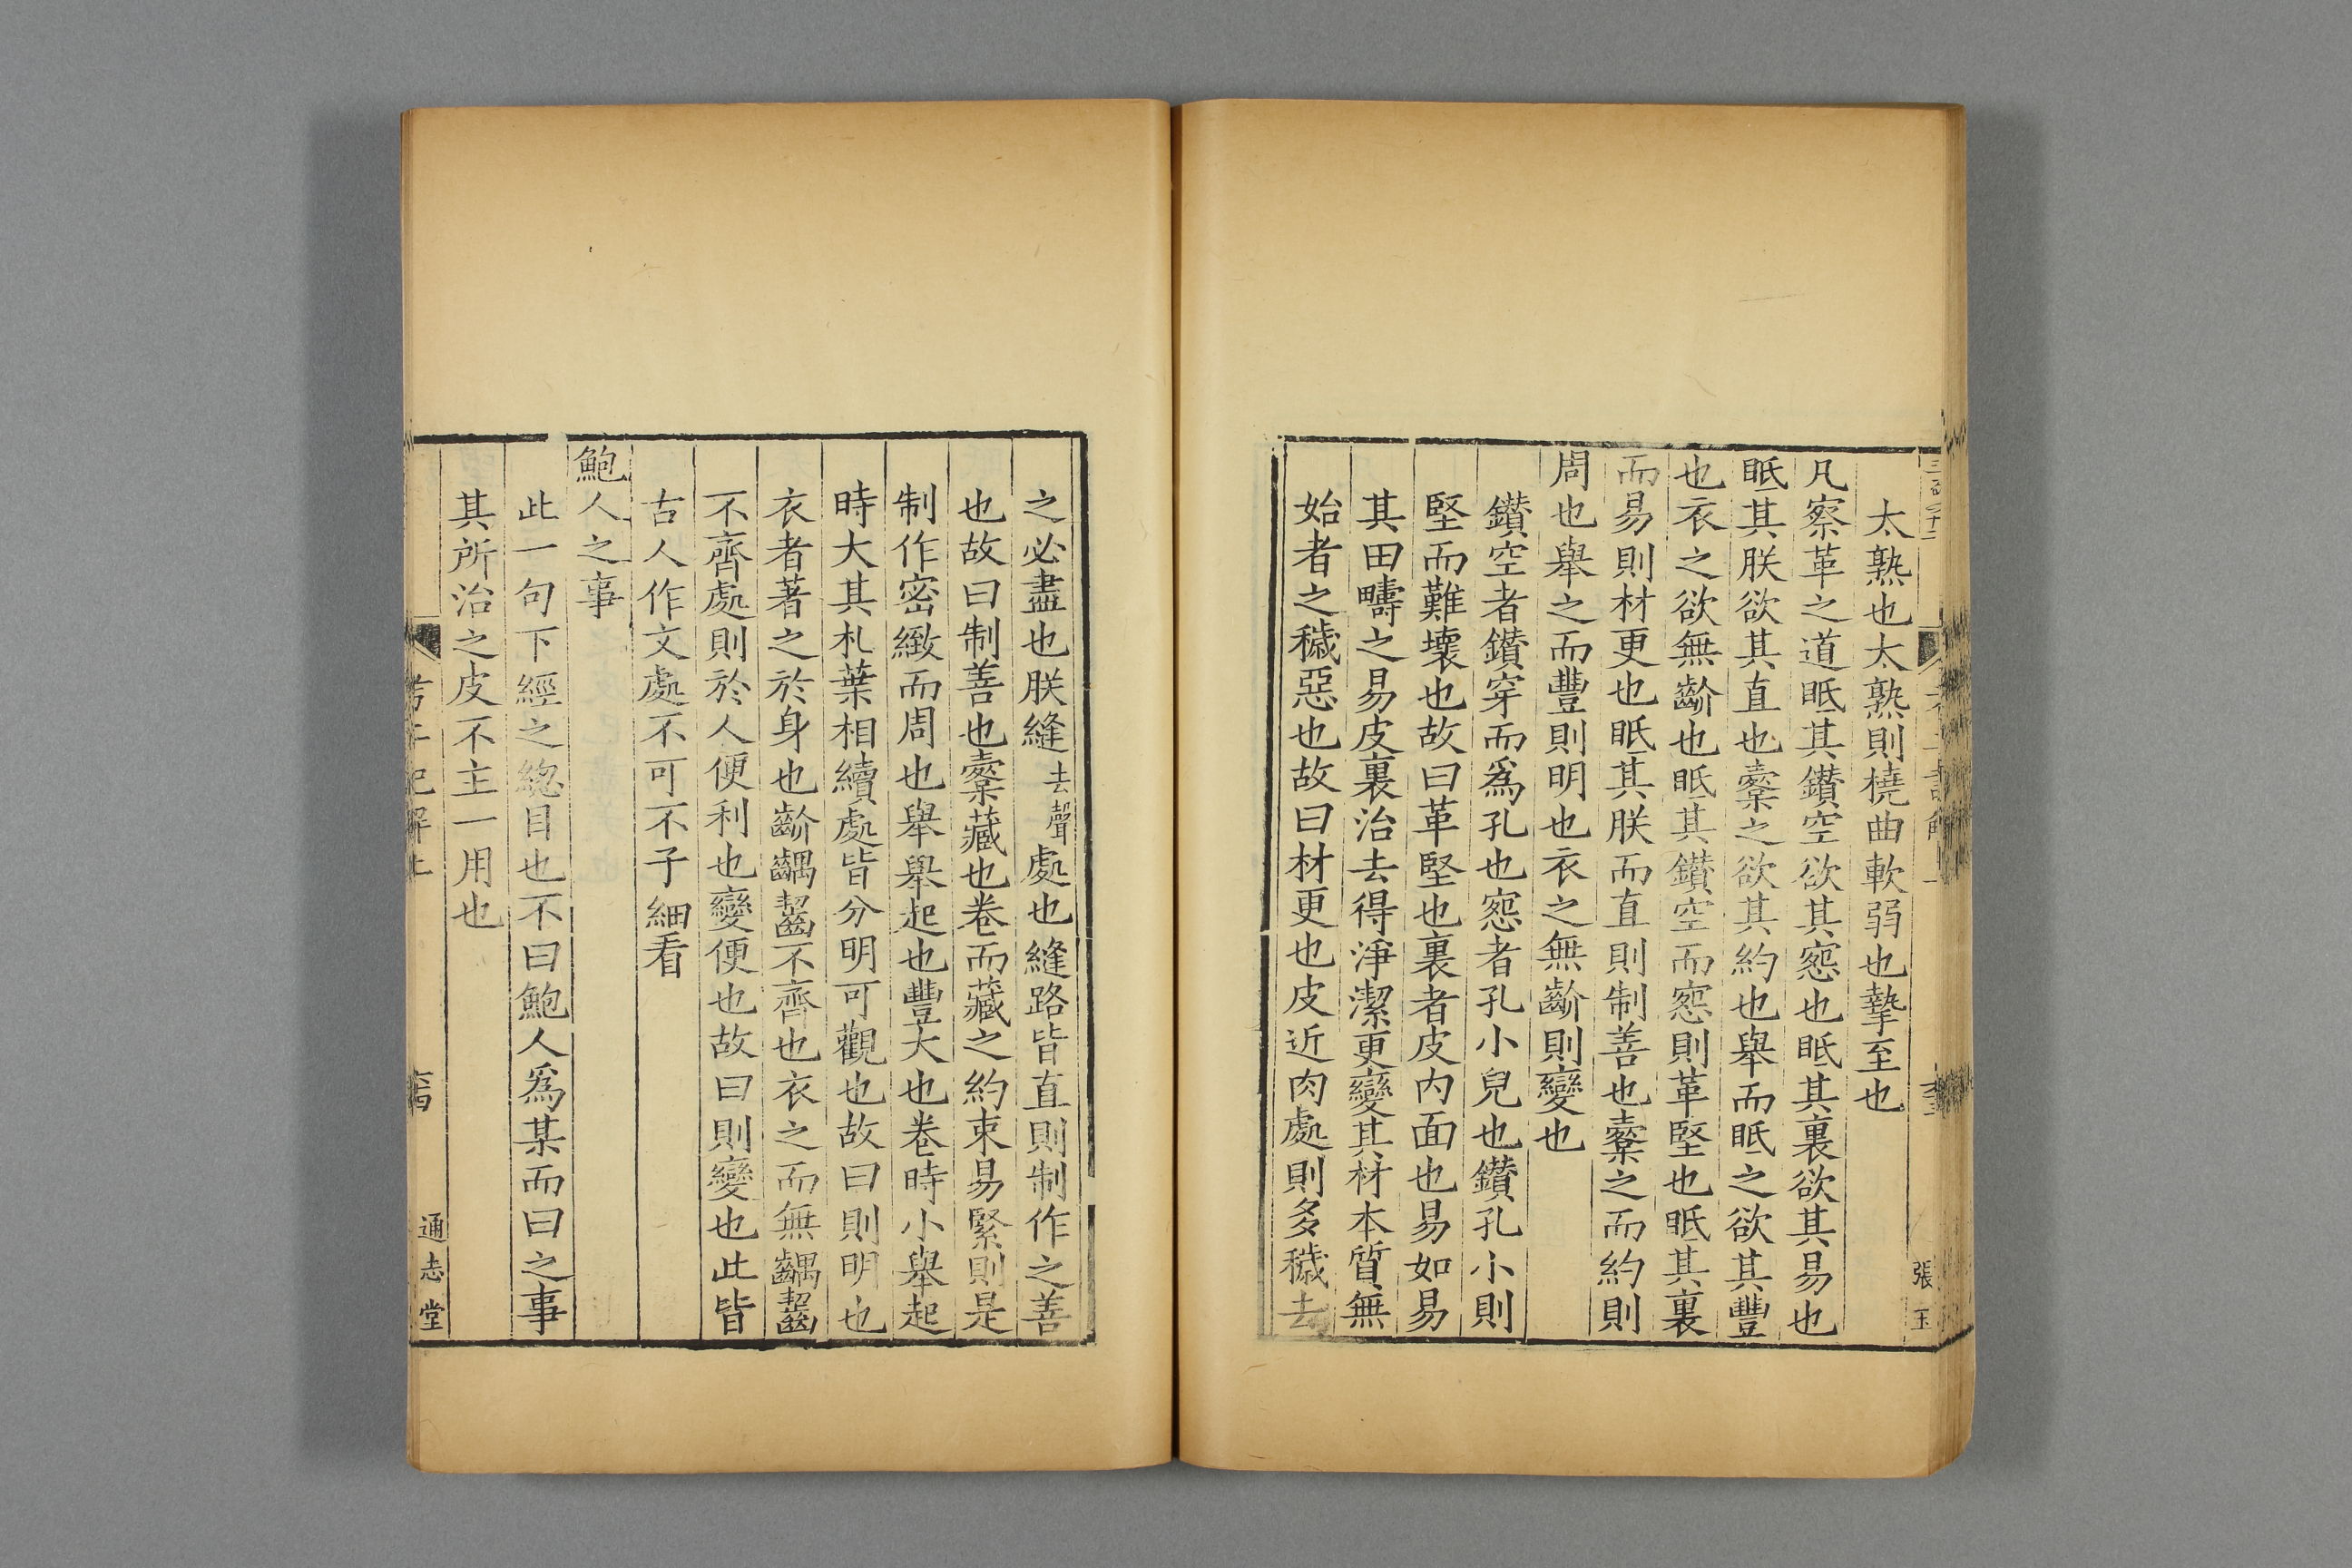 太熟也太熟則橈曲軟弱也摯至也
凡察革之道眂其鑽空欲其窓也眂其裏欲其易也
眂其朕欲其直也櫜之欲其約也舉而眂之欲其豐
也衣之欲無齘也眂其鑽空而窓則革堅也眂其裏
而易則材更也眂其朕而直則制善也櫜之而約則
周也舉之而豐則明也衣之無齘則變也
鑽空者鑽穿而爲孔也窓者孔小皃也鑽孔小則
堅而難壞也故曰革堅也裏者皮内面也易如易
其田疇之易皮裏治去得淨潔更變其材本質無
始者之穢惡也故曰材更也皮近肉處則多穢去
張玉
之必盡也朕縫去聲處也縫路皆直則制作之善
也故曰制善也櫜藏也卷而藏之約束易緊則是
制作密緻而周也舉舉起也豐大也卷時小舉起
時大其札葉相續處皆分明可觀也故曰則明也
衣者著之於身也齘齵齧不齊也衣之而無齵齧
不齊處則於人便利也變便也故曰則變也此皆
古人作文處不可不子細看
鮑人之事
此一句下經之緫目也不曰鮑人爲某而曰之事
其所治之皮不主一用也
通志堂